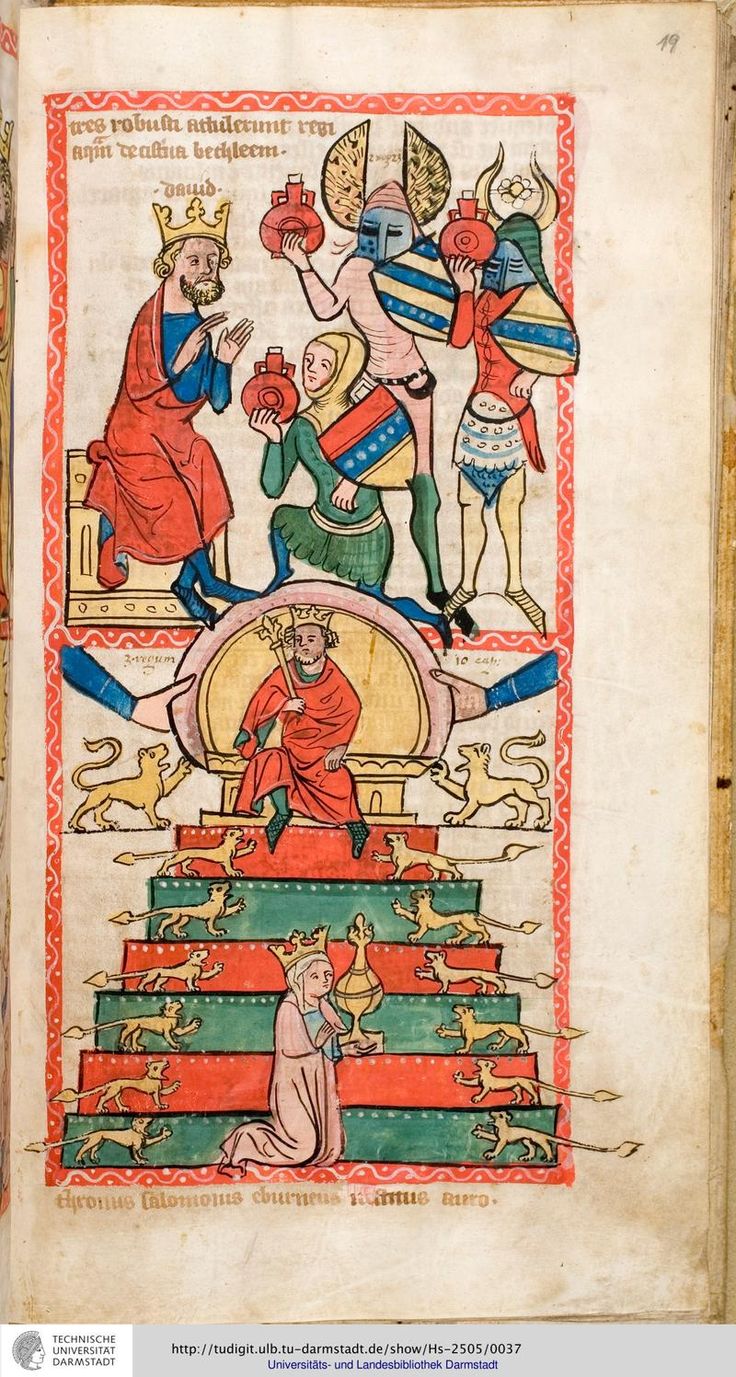 19
tres robusti attulerunt regi
aqm de cistna bethleem.
.dauid.
2 reg 23
3. regum
10 cap
thronus salomonis eburneus uestitus auro.
TECHNISCHE
UNIVERSITÄT
DARMSTADT
http://tudigit.ulb.tu-darmstadt.de/show/Hs-2505/0037
Universitäts- und Landesbibliothek Darmstadt